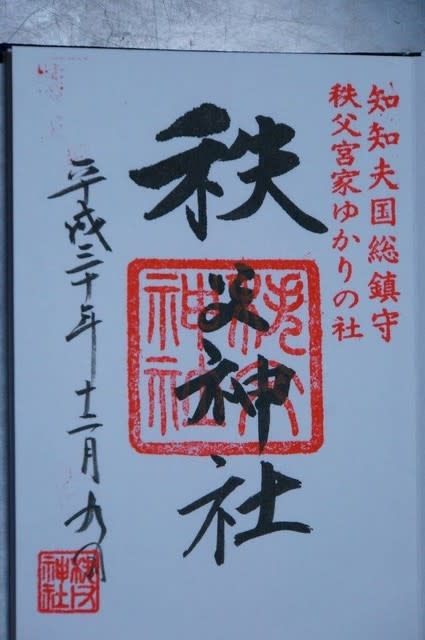 知知夫国総鎮守
秩父宮家ゆかりの社
秩父神社
秩父神社
平成二十年十二月九日
秩父神社